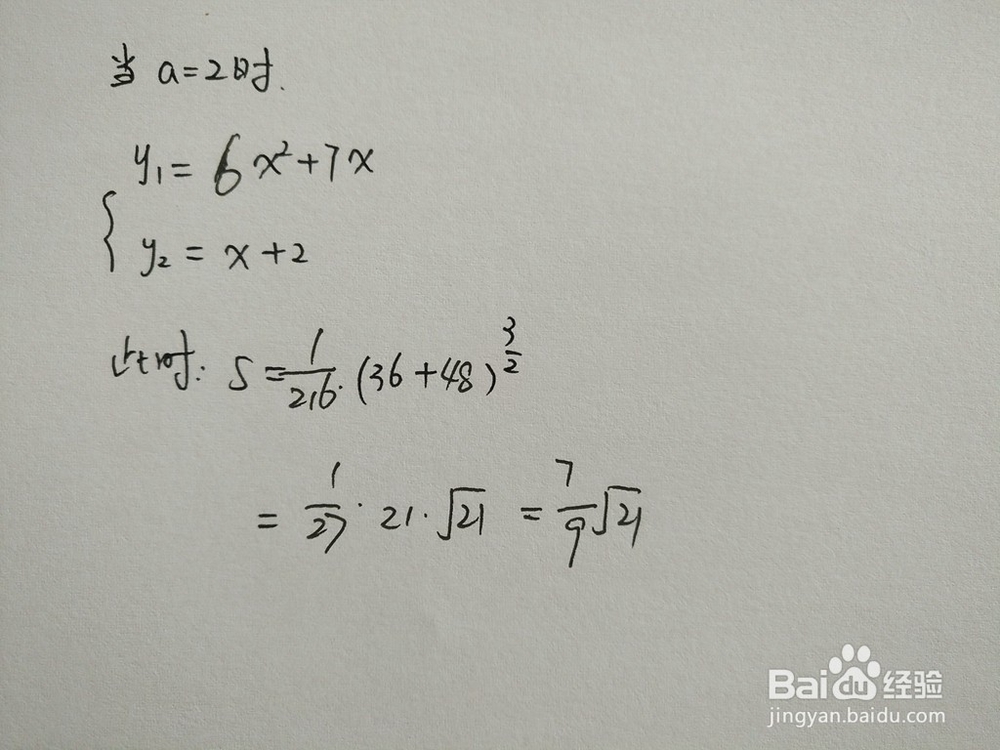 当 a=2时.
y₁ = 6x²+7x
{
y₂ = x+2
此时: S = 1/216 · (36+48)^(3/2)
= 1/27 · 21 · √21 = 7/9 √21
Baidu经验
jingyan.baidu.com